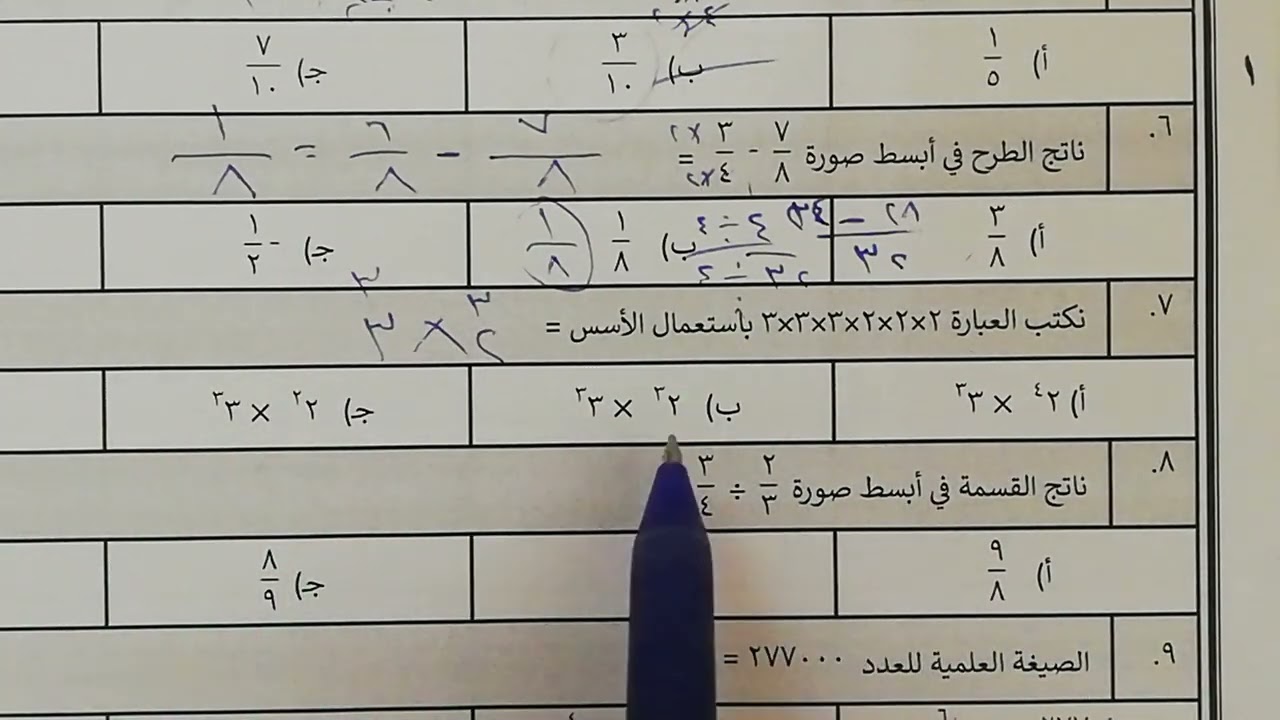 أ) ١/٥ ب) ٣/١٠ جـ) ٧/١٠
١
٦. ناتج الطرح في أبسط صورة ٧/٨ - ٣/٤ =
×٢
×٢
٧/٨ - ٦/٨ = ١/٨
أ) ٣/٨ ب) ١/٨ جـ) -١/٢
١/٨
٤ ÷ ٤
٧. نكتب العبارة ٢×٢×٢×٣×٣×٣ بأستعمال الأسس =
٢³ × ٣³
أ) ٢⁴ × ٣³ ب) ٢³ × ٣³ جـ) ٢² × ٣³
٨. ناتج القسمة في أبسط صورة ٢/٣ ÷ ٣/٤
أ) ٩/٨ جـ) ٨/٩
٩. الصيغة العلمية للعدد ٢٧٧٠٠٠ =